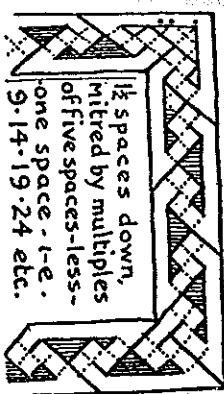 1½ spaces down,
mitred by multiples
of five spaces-less-
one space-i-e.
9.14.19.24 etc.